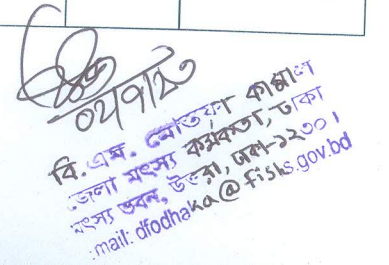 বি.এম. মোস্তফা কামাল
জেলা মৎস্য কর্মকর্তা, ঢাকা
মৎস্য ভবন, উত্তরা, ঢাকা-১২৩০।
mail: dfodhaka@fishs.gov.bd